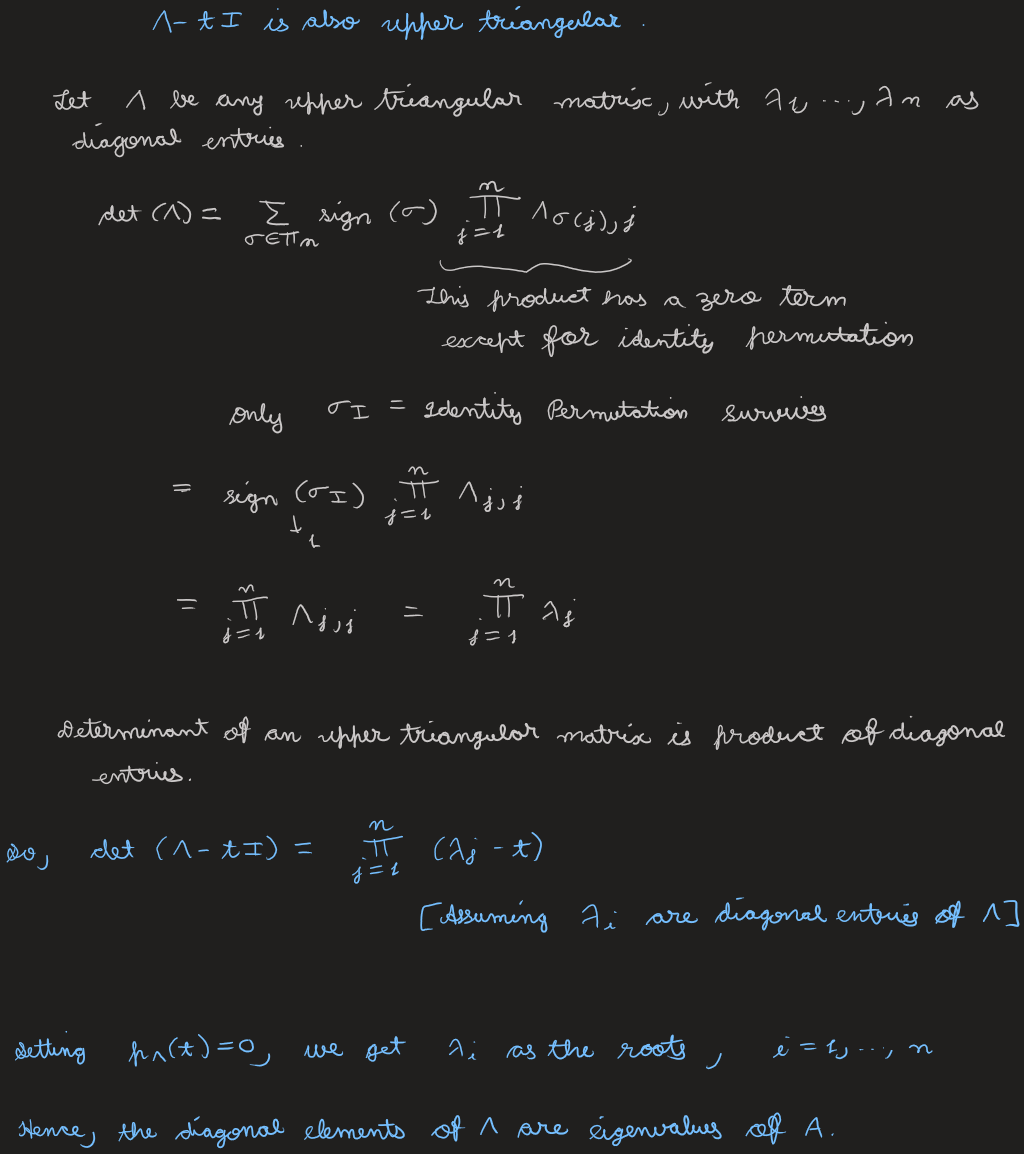 Λ - tI is also upper triangular.
Let Λ be any upper triangular matrix, with λ₁, ..., λn as
diagonal entries.
det (Λ) = ∑_{σ∈Πn} sign (σ) ∏_{j=1}^{n} Λ_{σ(j), j}
This product has a zero term
except for identity permutation
only σ_I = Identity Permutation survives
= sign (σ_I) ∏_{j=1}^{n} Λ_{j, j}
↓ 1
= ∏_{j=1}^{n} Λ_{j, j} = ∏_{j=1}^{n} λ_j
Determinant of an upper triangular matrix is product of diagonal
entries.
So, det (Λ - tI) = ∏_{j=1}^{n} (λ_j - t)
[Assuming λ_i are diagonal entries of Λ]
Setting p_Λ(t) = 0, we get λ_i as the roots, i = 1, ..., n
Hence, the diagonal elements of Λ are eigenvalues of A.